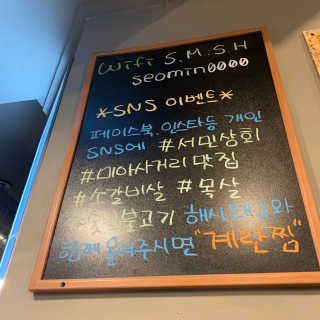 Wifi S.M.S.H
seomin0000
*SNS 이벤트*
페이스북, 인스타등 개인
SNS에 #서민상회
#미아사거리 맛집
#소갈비살 #목살
불고기 해시태그와
함께 올려주시면 "계란찜"